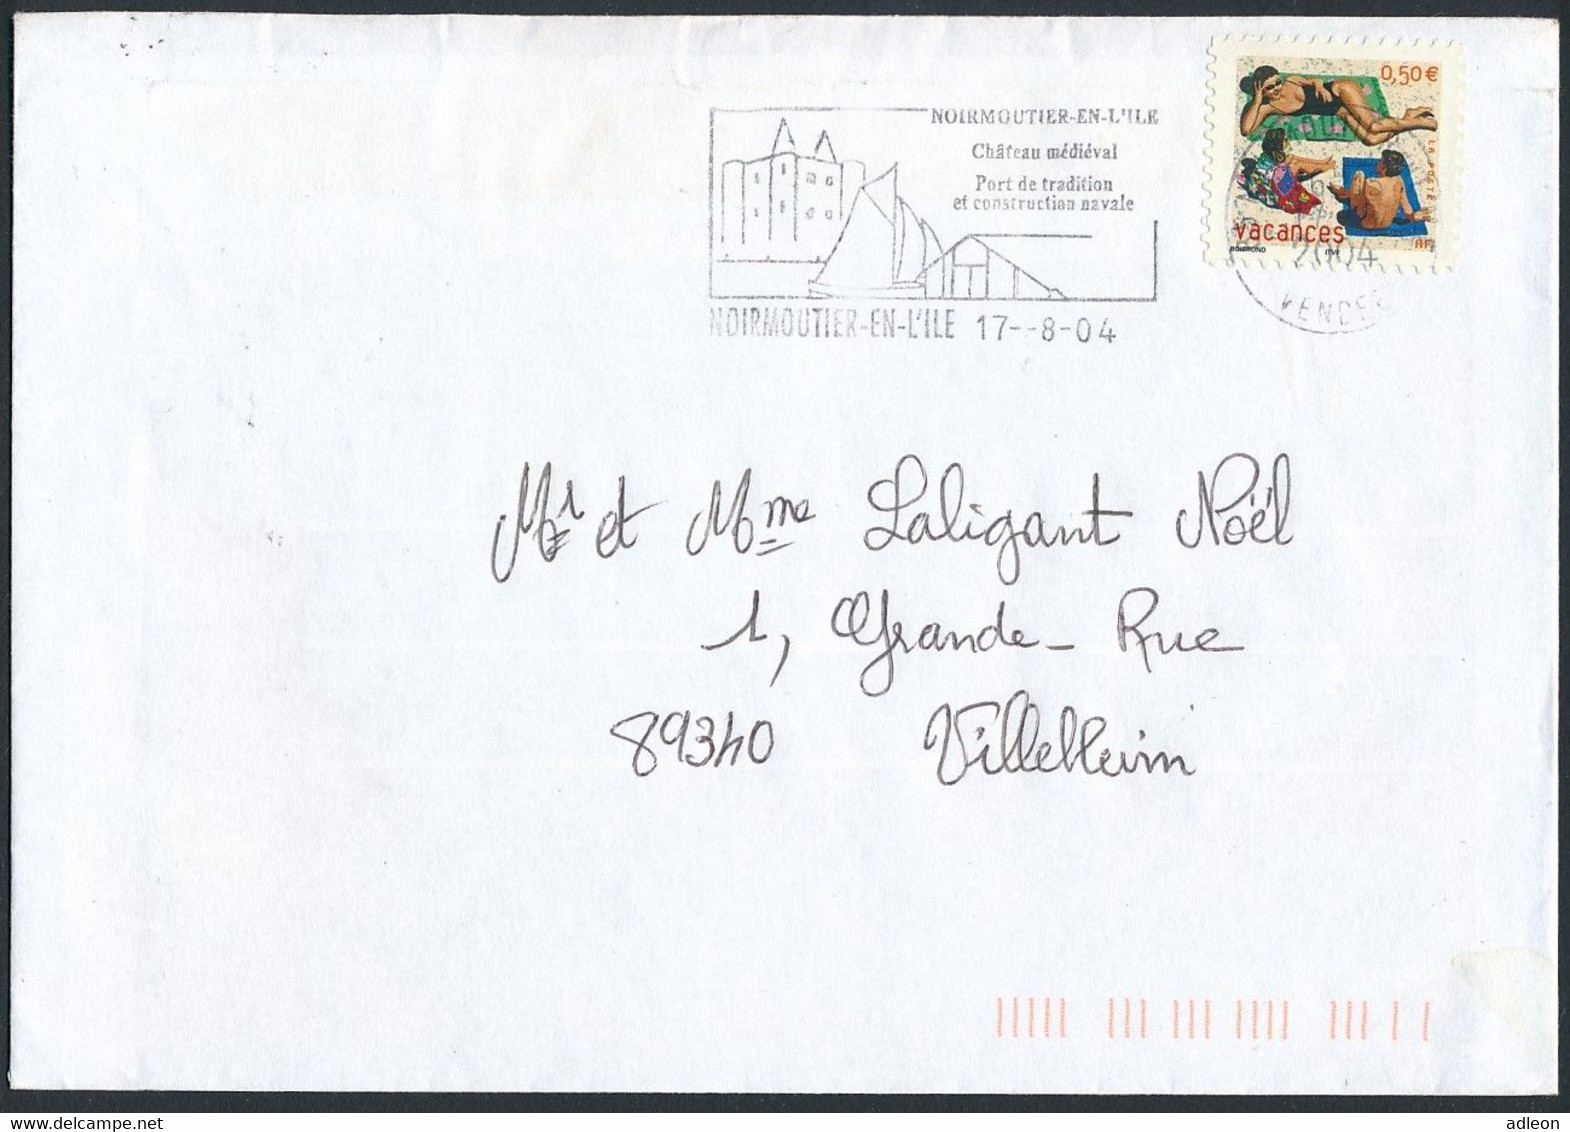 NOIRMOUTIER-EN-L'ILE
Château médiéval
Port de tradition
et construction navale
NOIRMOUTIER-EN-L'ILE 17--8-04
0,50 €
LA POSTE
vacances
BOISROND
RF
2004
VENDEE
Mr et Mme Laligant Noël
1, Grande-Rue
89340 Villebleuvin
adleon